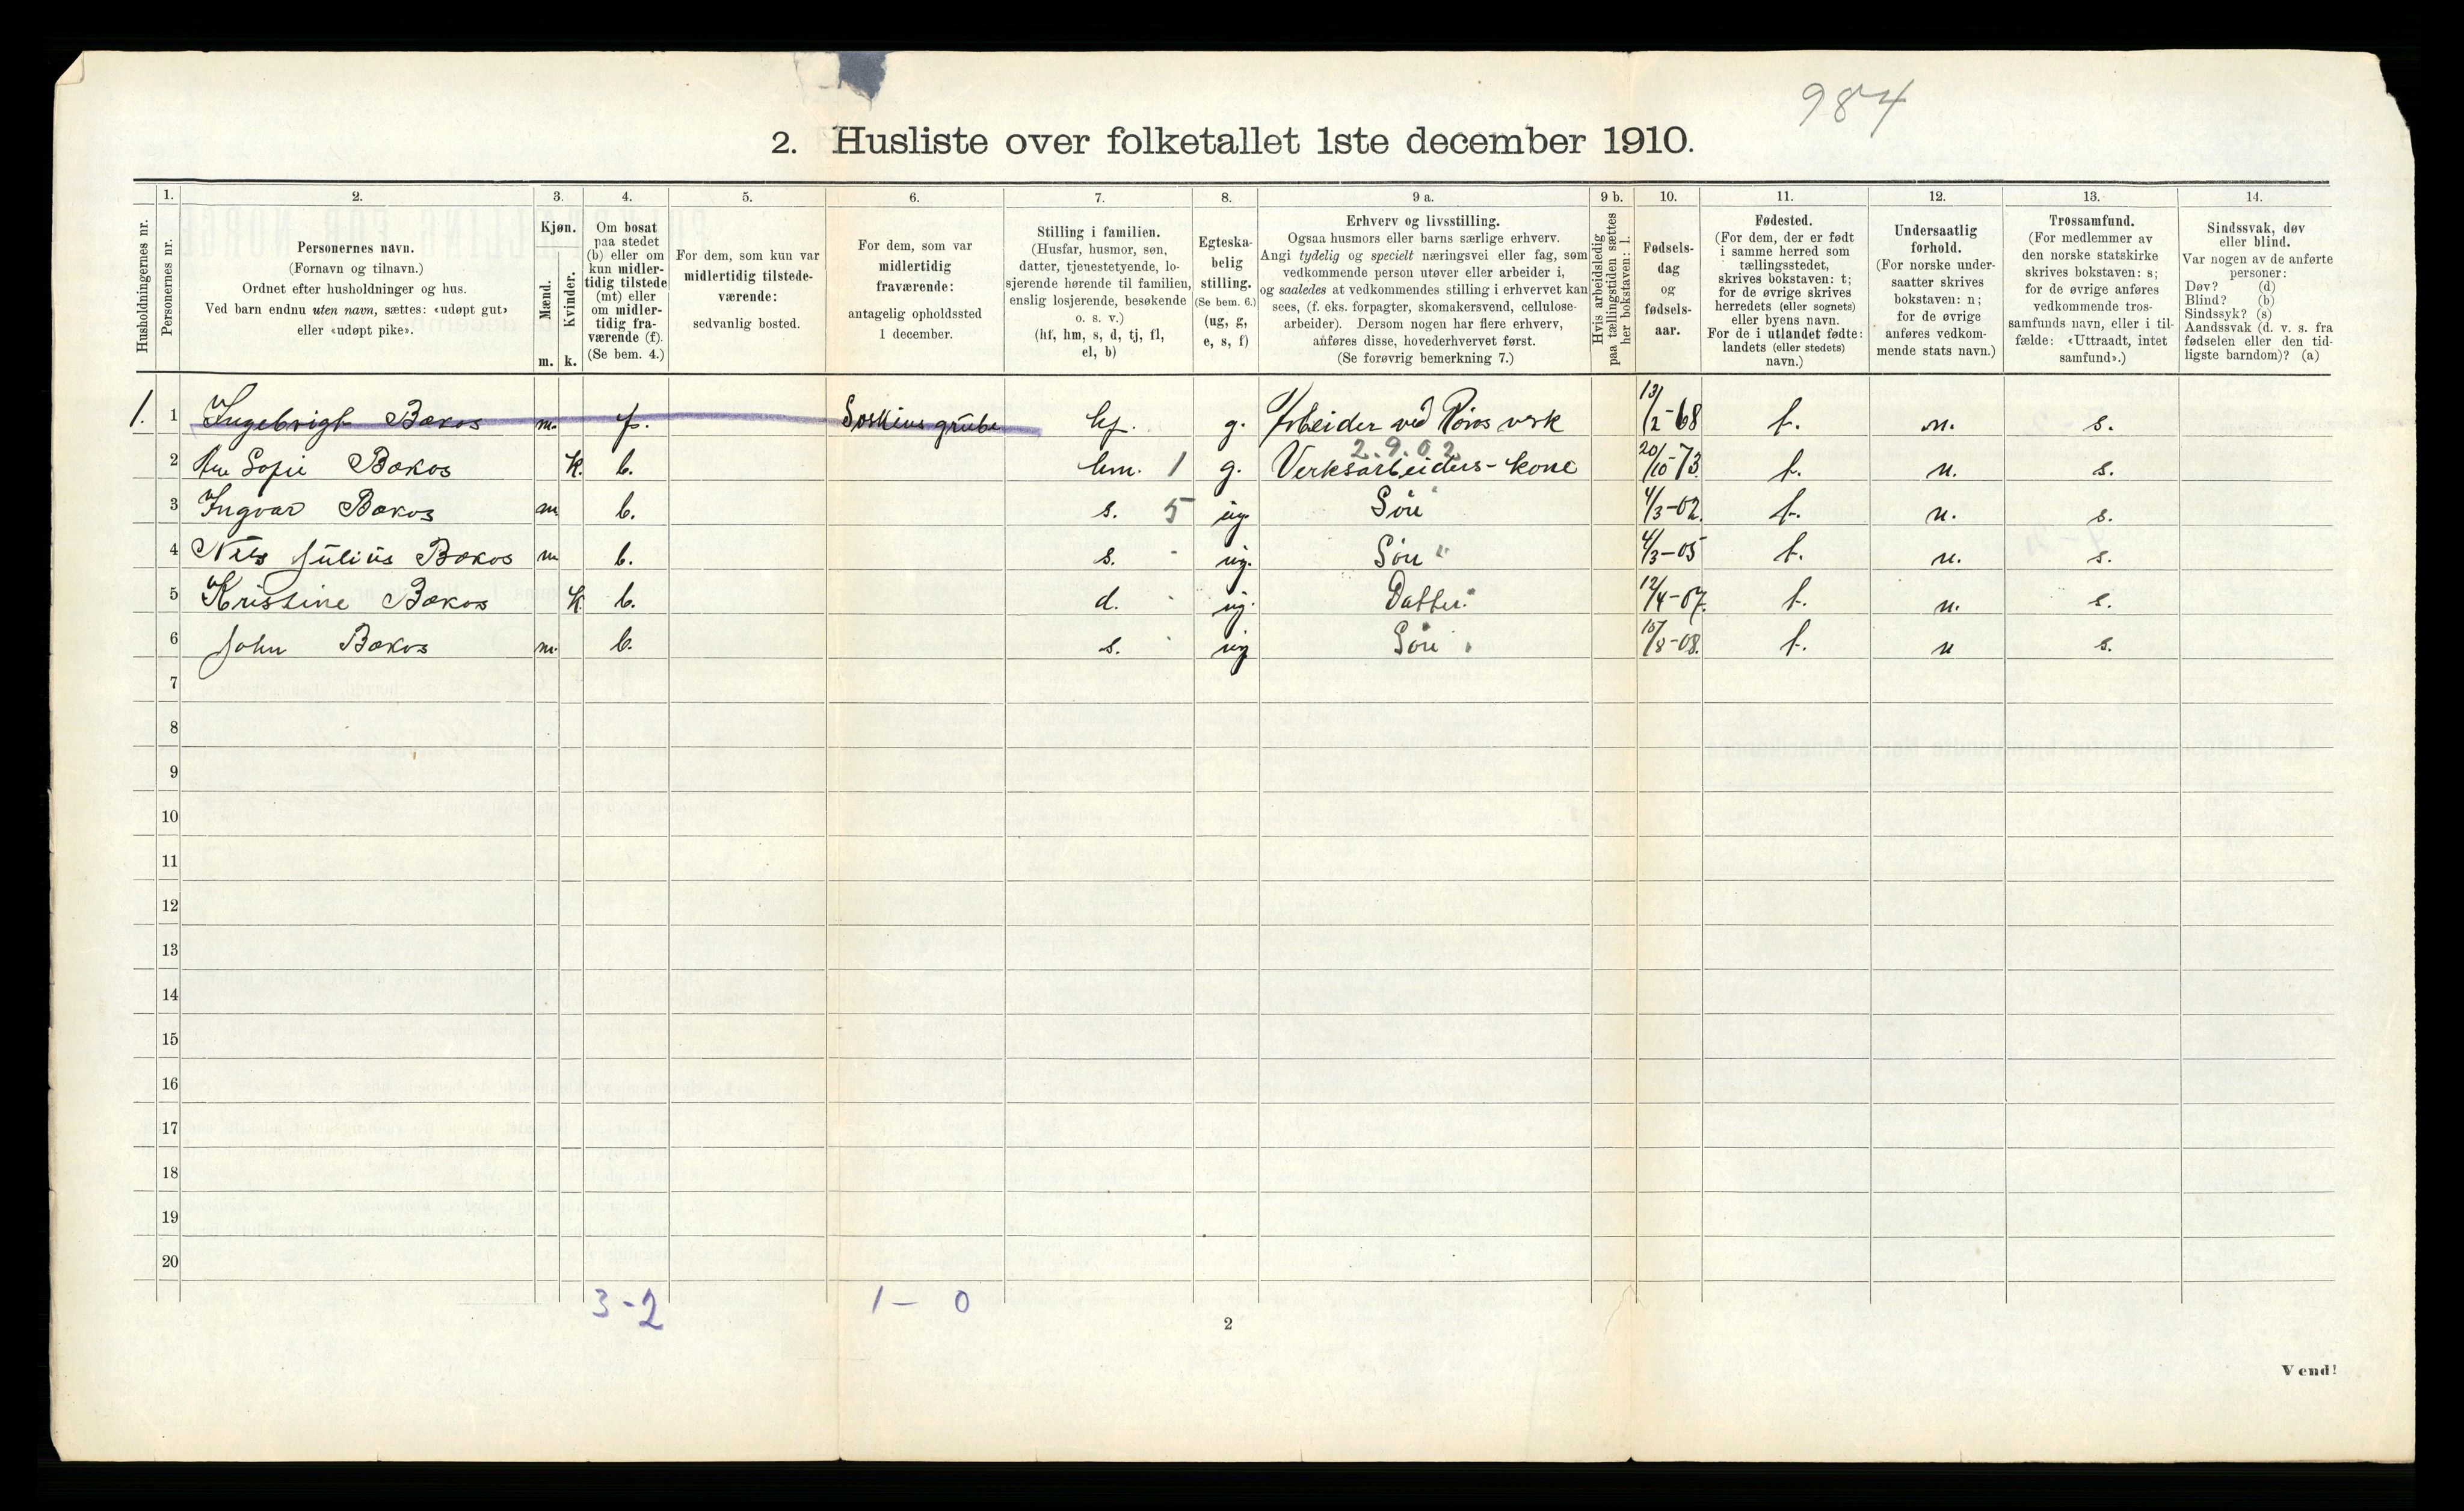 984
2. Husliste over folketallet 1ste december 1910.
Husholdningernes nr.
1. Personernes nr.
2. Personernes navn.
(Fornavn og tilnavn.)
Ordnet efter husholdninger og hus.
Ved barn endnu uten navn, sættes: «udøpt gut»
eller «udøpt pike».
3. Kjøn.
Mænd. m.
Kvinder. k.
4. Om bosat
paa stedet
(b) eller om
kun midler-
tidig tilstede
(mt) eller
om midler-
tidig fra-
værende (f).
(Se bem. 4.)
5. For dem, som kun var
midlertidig tilstede-
værende:
sedvanlig bosted.
6. For dem, som var
midlertidig
fraværende:
antagelig opholdssted
1 december.
7. Stilling i familien.
(Husfar, husmor, søn,
datter, tjenestetyende, lo-
sjerende hørende til familien,
enslig losjerende, besøkende
o. s. v.)
(hf, hm, s, d, tj, fl,
el, b)
8. Egteska-
belig
stilling.
(Se bem. 6.)
(ug, g,
e, s, f)
9 a. Erhverv og livsstilling.
Ogsaa husmors eller barns særlige erhverv.
Angi tydelig og specielt næringsvei eller fag, som
vedkommende person utøver eller arbeider i,
og saaledes at vedkommendes stilling i erhvervet kan
sees, (f. eks. forpagter, skomakersvend, cellulose-
arbeider). Dersom nogen har flere erhverv,
anføres disse, hovederhvervet først.
(Se forøvrig bemerkning 7.)
9 b. Hvis arbeidsledig
paa tællingstiden sættes
her bokstaven: l.
10. Fødsels-
dag
og
fødsels-
aar.
11. Fødested.
(For dem, der er født
i samme herred som
tællingsstedet,
skrives bokstaven: t;
for de øvrige skrives
herredets (eller sognets)
eller byens navn.
For de i utlandet fødte:
landets (eller stedets)
navn.)
12. Undersaatlig
forhold.
(For norske under-
saatter skrives
bokstaven: n;
for de øvrige
anføres vedkom-
mende stats navn.)
13. Trossamfund.
(For medlemmer av
den norske statskirke
skrives bokstaven: s;
for de øvrige anføres
vedkommende tros-
samfunds navn, eller i til-
fælde: «Uttraadt, intet
samfund».)
14. Sindssvak, døv
eller blind.
Var nogen av de anførte
personer:
Døv? (d)
Blind? (b)
Sindssyk? (s)
Aandssvak (d. v. s. fra
fødselen eller den tid-
ligste barndom)? (a)
1. 1 Ingebrigt Bækos m. f. hf. g. Arbeider ved Røros verk 13/2-68 t. n. s.
2.9.02
2 Ane Sofie Bækos k. b. hm. 1 g. Verksarbeiders-kone 20/10-73. t. n. s.
3 Ingvar Bækos m. b. s. 5 ug. Søn 4/3-02. t. n. s.
4 Nils Julius Bækos m b. s. - ug. Søn " 4/3-05 t. n. s.
5 Kristine Bækos k b. d. ug. Datter 12/4-07. t. n. s.
6 John Bækos m. b. s. ug Søn 15/8-08. t. n s.
7
8
9
10
11
12
13
14
15
16
17
18
19
20
3-2 1 - 0
2
Vend!